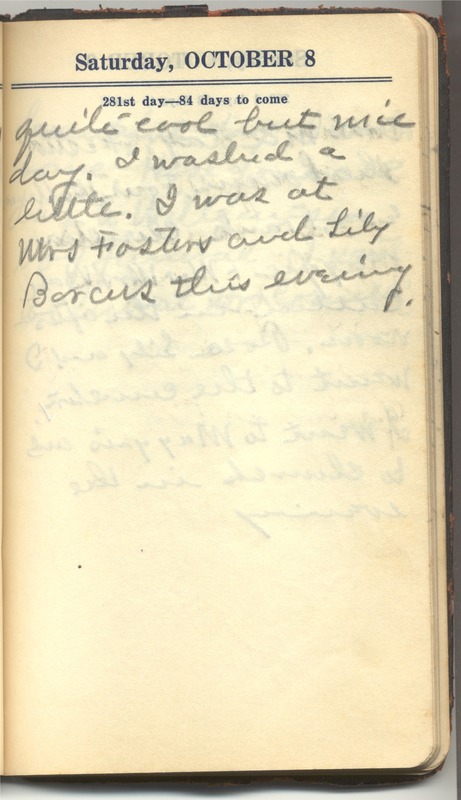 Saturday, OCTOBER 8
281st day—84 days to come
quite cool but nice
day. I washed a
little. I was at
Mrs Fosters and Lily
Borcus this evening.